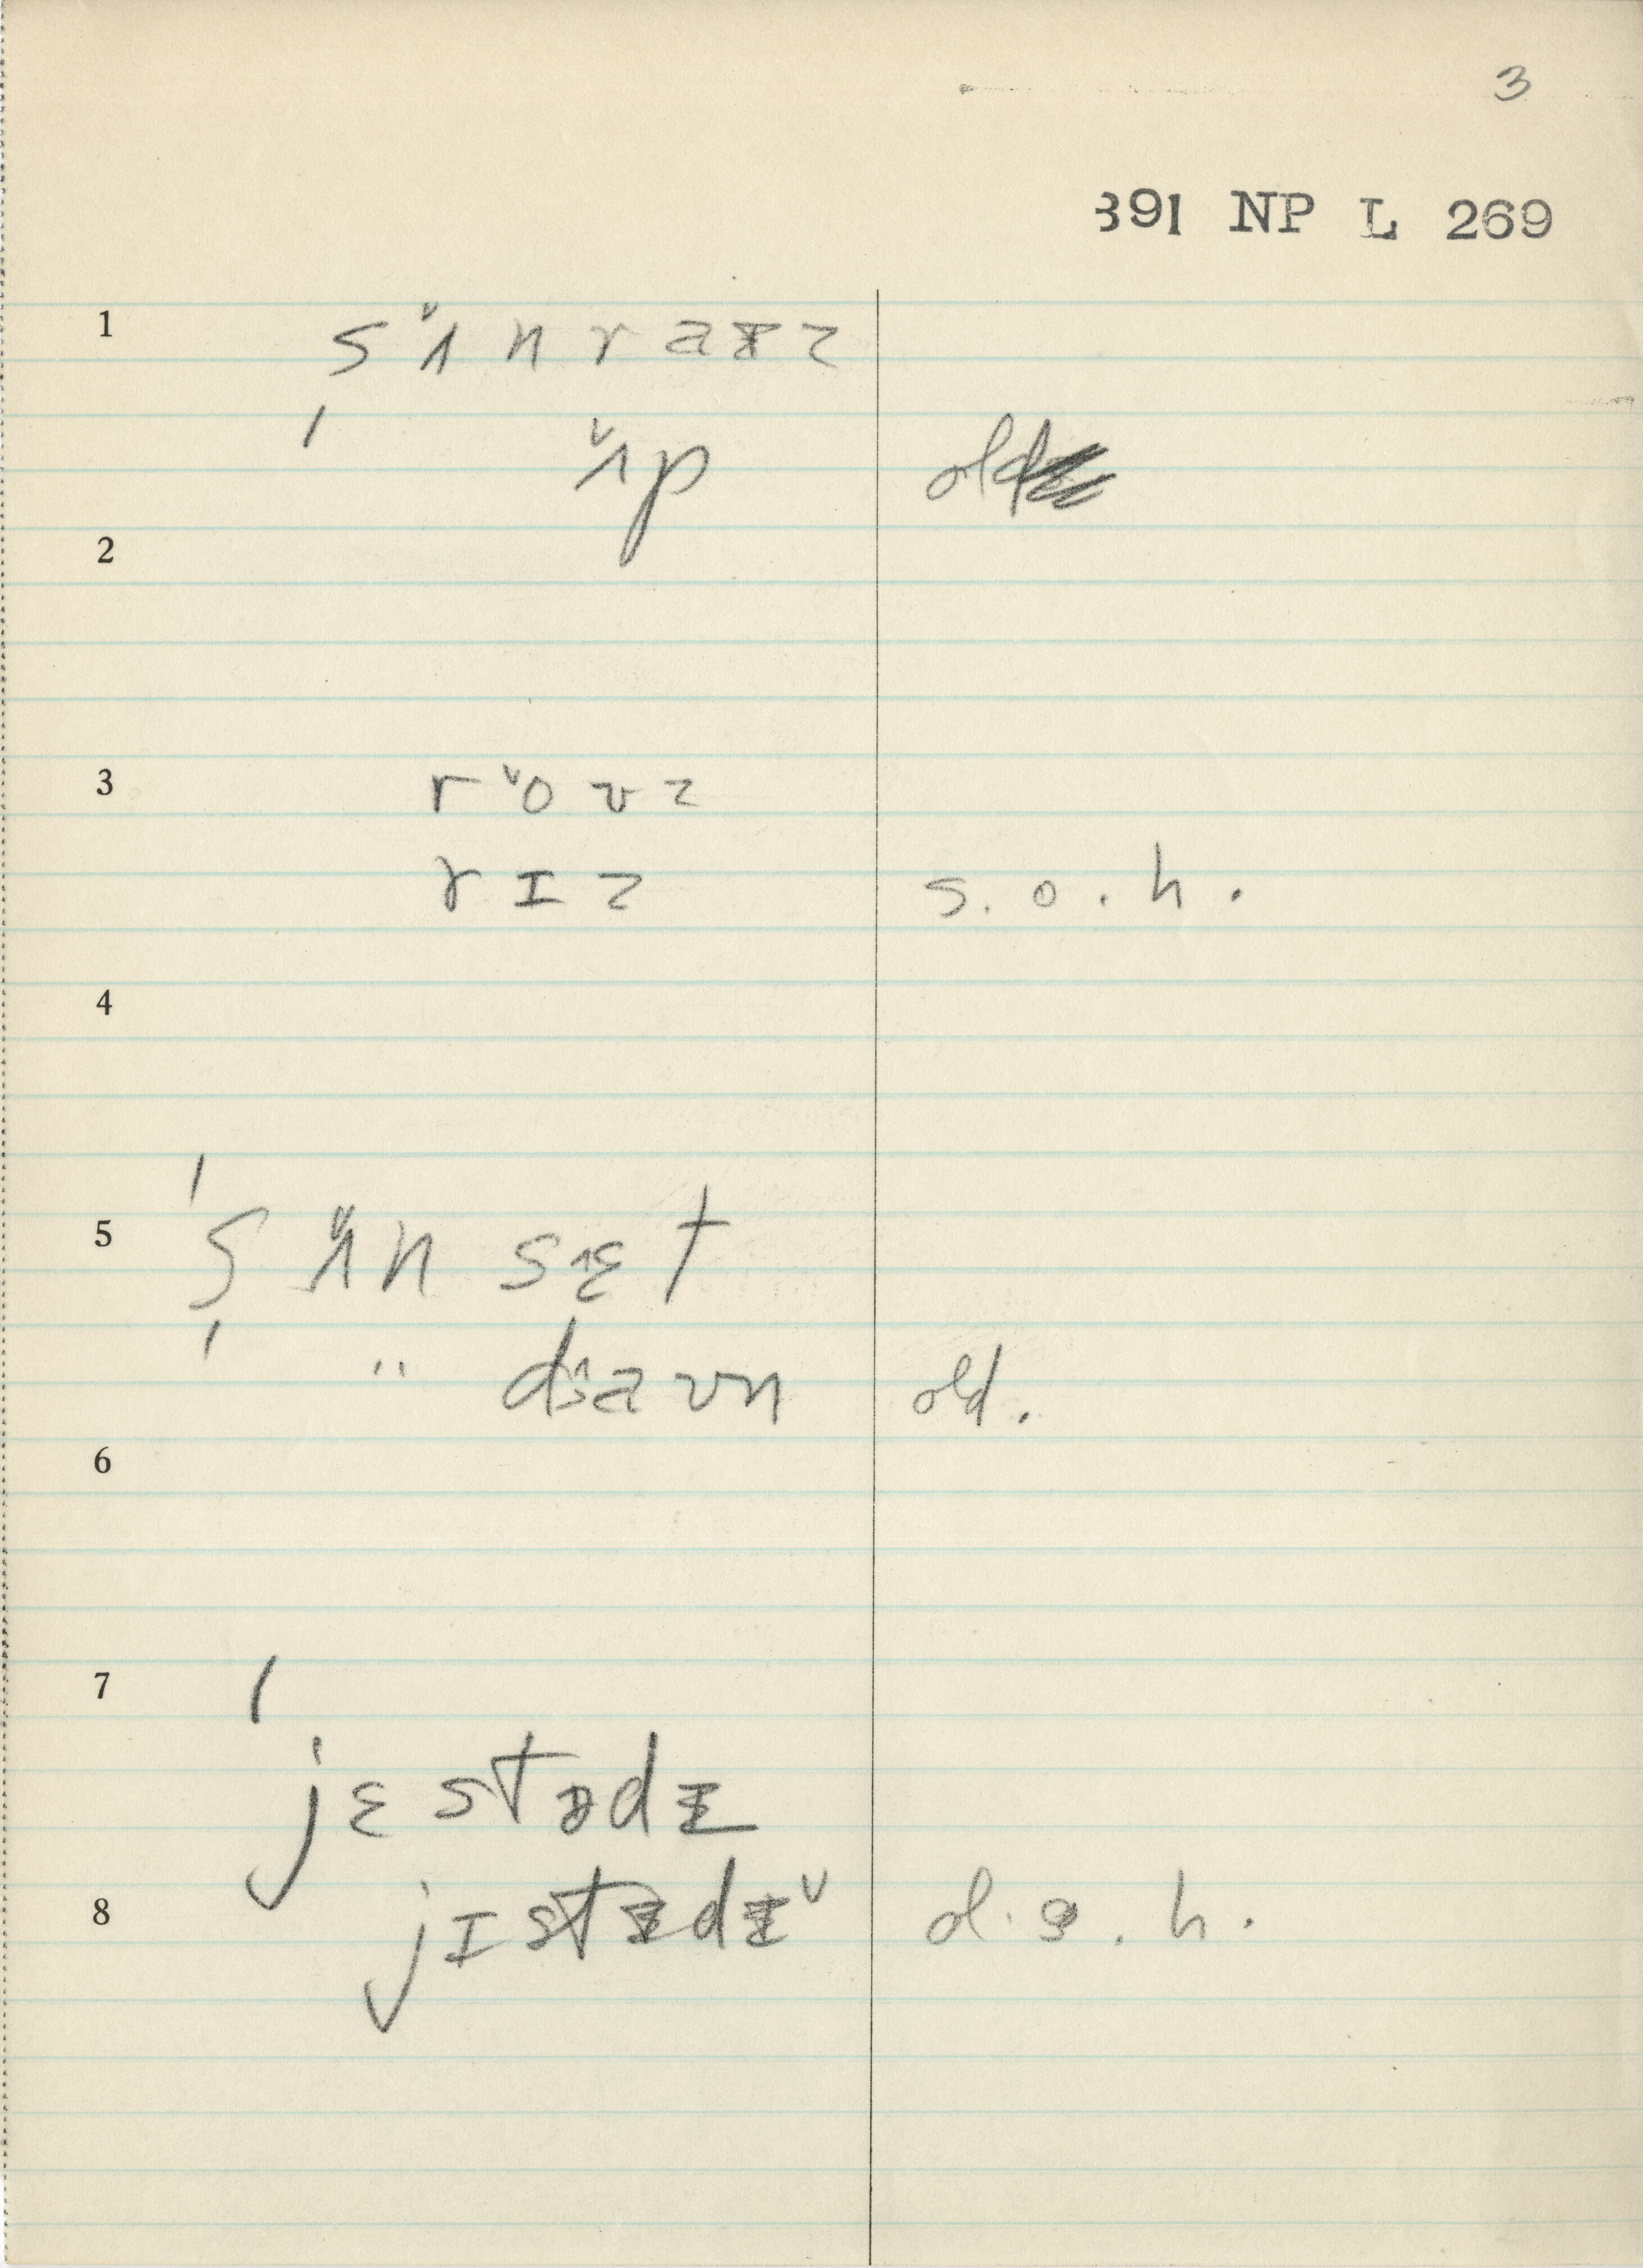 3
391 NP L 269
1 sʌ̌nraɪz
' ʌ̌p old
2
3 rˇoʊz
rɪz s. o. h.
4
5 'sʌ̌nsɛt
' " daʊn old.
6
7 '
jɛstədɪ
8 jɪstɪdɪˇ d. s. h.